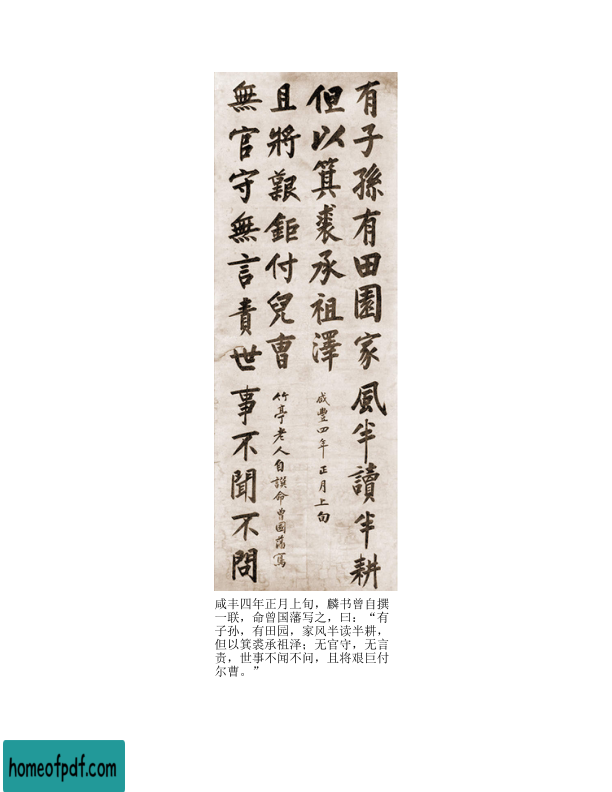 有子孫有田園家風半讀半耕
但以箕裘承祖澤
咸豐四年正月上旬
且將艱鉅付兒曹
竹亭老人自譔命曾國藩寫
無官守無言責世事不聞不問
咸丰四年正月上旬，麟书曾自撰
一联，命曾国藩写之，曰：“有
子孙，有田园，家风半读半耕，
但以箕裘承祖泽；无官守，无言
责，世事不闻不问，且将艰巨付
尔曹。”
homeofpdf.com